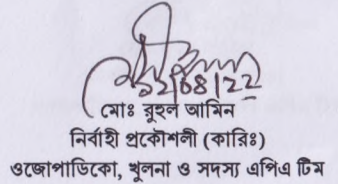 ১২/০৪/২২
মোঃ রুহুল আমিন
নির্বাহী প্রকৌশলী (কারিঃ)
ওজোপাডিকো, খুলনা ও সদস্য এপিএ টিম